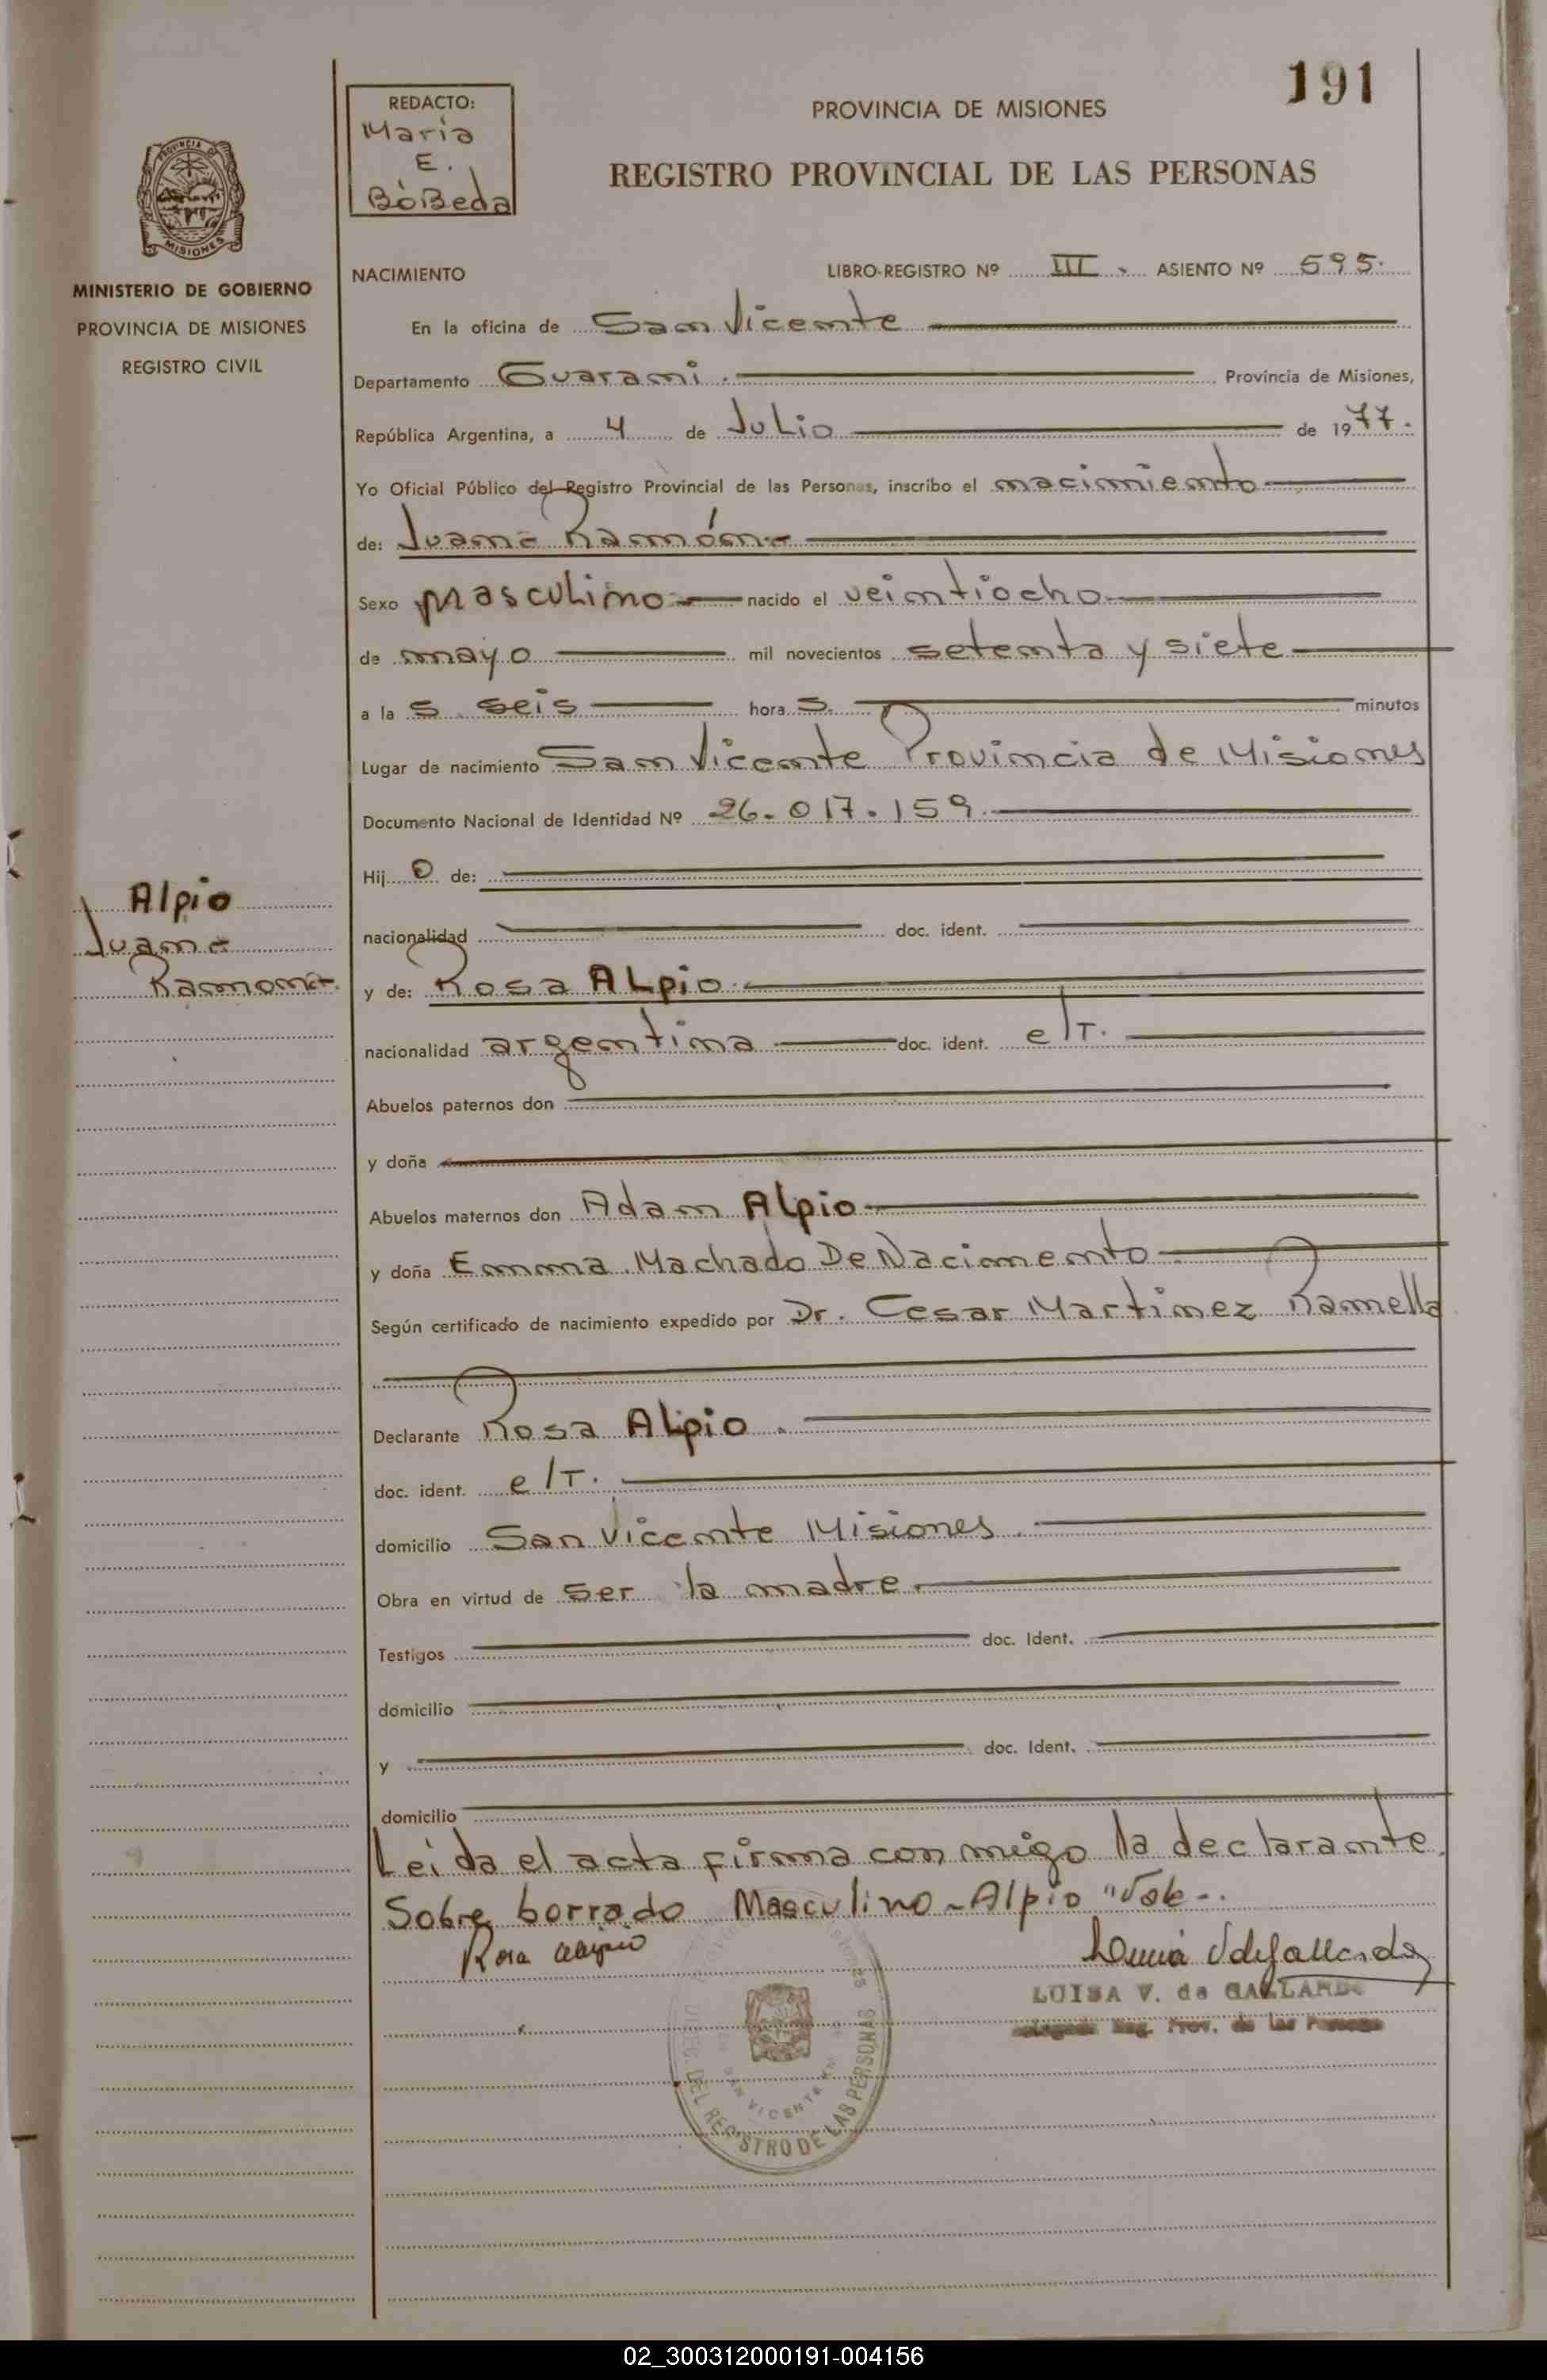 191
REDACTO:
María
E.
BóBeda
PROVINCIA DE MISIONES
REGISTRO PROVINCIAL DE LAS PERSONAS
PROVINCIA DE
MISIONES
MINISTERIO DE GOBIERNO
PROVINCIA DE MISIONES
REGISTRO CIVIL
NACIMIENTO LIBRO-REGISTRO Nº III - ASIENTO Nº 595.
En la oficina de San Vicente
Departamento Guarani. Provincia de Misiones,
República Argentina, a 4 de Julio de 1977.
Yo Oficial Público del Registro Provincial de las Personas, inscribo el nacimiento
de: Juan - Ramón -
Sexo masculino nacido el veintiocho
de mayo mil novecientos setenta y siete
a las seis horas minutos
Lugar de nacimiento San Vicente Provincia de Misiones
Documento Nacional de Identidad Nº 26.017.159.
Hijo de:
nacionalidad doc. ident.
y de: Rosa ALpio
nacionalidad argentina doc. ident. e/T.
Abuelos paternos don
y doña
Abuelos maternos don Adam Alpio
y doña Emma Machado De Nacimento
Según certificado de nacimiento expedido por Dr. Cesar Martinez Ramella
Declarante Rosa ALpio.
doc. ident. e/T.
domicilio San Vicente Misiones.
Obra en virtud de ser la madre.
Testigos doc. Ident.
domicilio
y doc. Ident.
domicilio
Leida el acta firma con migo la declarante.
Sobre borrado Masculino - Alpio "Vale-.
Alpio
Juan -
Ramon -
Rosa
LUISA V. de GALLARDO
Reg. Prov. de las Personas
DEL REGISTRO DE LAS PERSONAS
SAN VICENTE
02_300312000191-004156